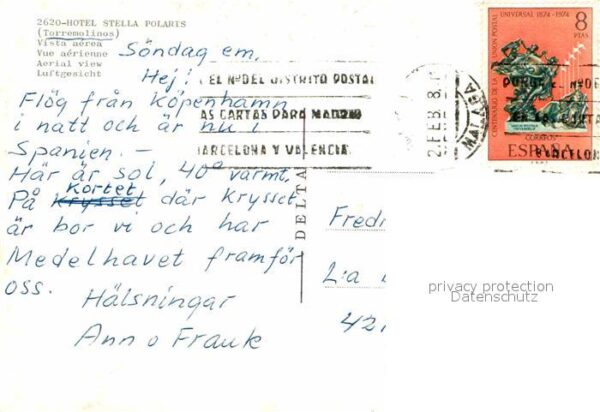 2620-HOTEL STELLA POLARIS
(Torremolinos)
Vista aérea
Vue aérienne
Aerial view
Luftgesicht
Söndag em.
Hej!
Flög från Köpenhamn
i natt och är nu i
Spanien. -
Här är sol, 40° varmt.
På krysset Kortet där krysset
är bor vi och har
Medelhavet framför
oss.
Hälsningar
Ann o Frank
EL Nº DEL DISTRITO POSTAL
AS CARTAS PARA MADRID
BARCELONA Y VALENCIA
2.FEB 8
MALAGA
DELTA
UNIVERSAL 1874-1974
CENTENARIO DE LA UNION POSTAL
8
PTAS
CORREOS
ESPAÑA
Fredr
L:a
42
privacy protection
Datenschutz